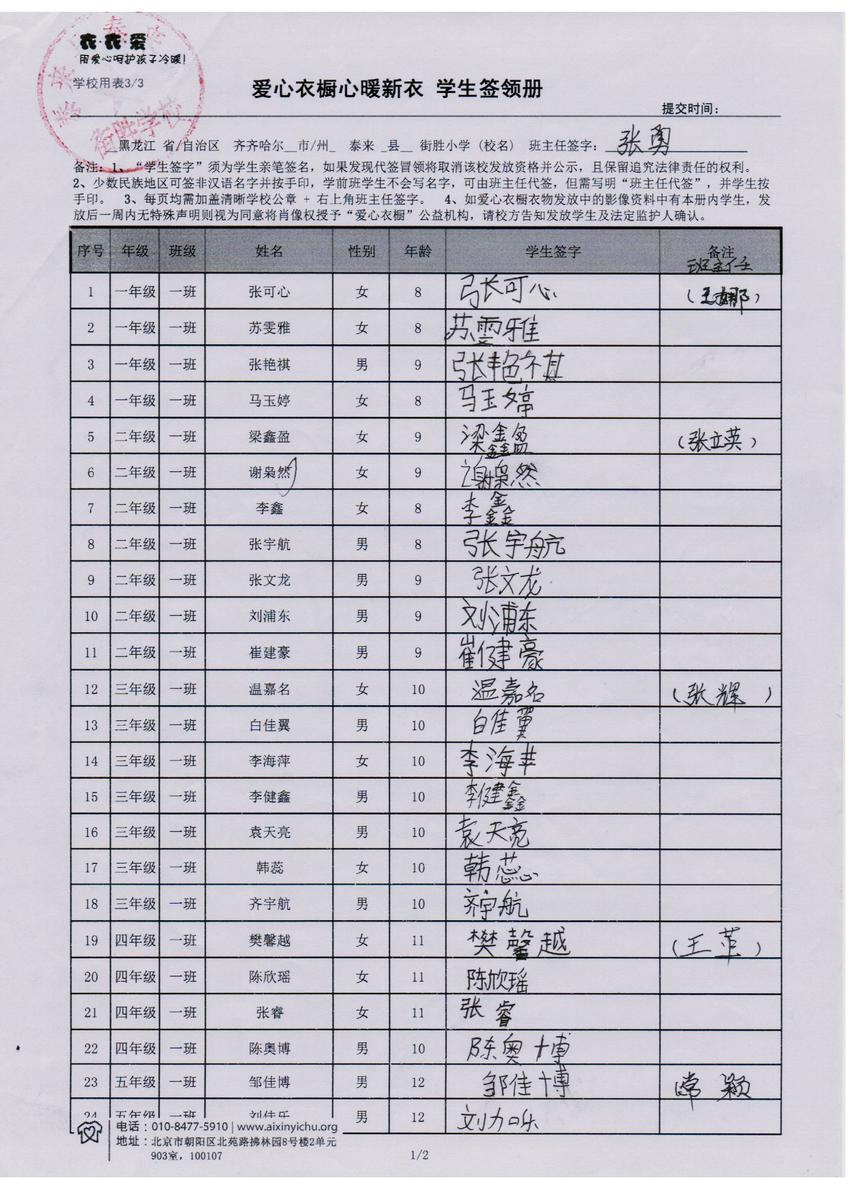 衣·衣·爱
用爱心呵护孩子冷暖!
学校用表3/3
街胜学校
爱心衣橱心暖新衣 学生签领册
提交时间:
黑龙江 省/自治区 齐齐哈尔 市/州_ 泰来 _县__ 街胜小学 (校名) 班主任签字: 张勇
备注: 1、“学生签字”须为学生亲笔签名，如果发现代签冒领将取消该校发放资格并公示，且保留追究法律责任的权利。
2、少数民族地区可签非汉语名字并按手印，学前班学生不会写名字，可由班主任代签，但需写明“班主任代签”，并学生按
手印。 3、每页均需加盖清晰学校公章 + 右上角班主任签字。 4、如爱心衣橱衣物发放中的影像资料中有本册内学生，发
放后一周内无特殊声明则视为同意将肖像权授予“爱心衣橱”公益机构，请校方告知发放学生及法定监护人确认。
序号 年级 班级 姓名 性别 年龄 学生签字 备注
班主任
1 一年级 一班 张可心 女 8 张可心 (王娜)
2 一年级 一班 苏雯雅 女 8 苏雯雅
3 一年级 一班 张艳祺 男 9 张艳祺
4 一年级 一班 马玉婷 女 8 马玉婷
5 二年级 一班 梁鑫盈 女 9 梁鑫盈 (张立英)
6 二年级 一班 谢枭然 女 9 谢枭然
7 二年级 一班 李鑫 女 8 李鑫
8 二年级 一班 张宇航 男 8 张宇航
9 二年级 一班 张文龙 男 9 张文龙
10 二年级 一班 刘浦东 男 9 刘浦东
11 二年级 一班 崔建豪 男 9 崔健豪
12 三年级 一班 温嘉名 女 10 温嘉名 (张辉)
13 三年级 一班 白佳翼 男 10 白佳翼
14 三年级 一班 李海萍 女 10 李海
15 三年级 一班 李健鑫 男 10 李健鑫
16 三年级 一班 袁天亮 男 10 袁天亮
17 三年级 一班 韩蕊 女 10 韩蕊
18 三年级 一班 齐宇航 男 10 齐宇航
19 四年级 一班 樊馨越 女 11 樊馨越 (王苹)
20 四年级 一班 陈欣瑶 女 11 陈欣瑶
21 四年级 一班 张睿 女 11 张睿
22 四年级 一班 陈奥博 男 10 陈奥博
23 五年级 一班 邹佳博 男 12 邹佳博 常颖
24 五年级 一班 刘佳乐 男 12 刘
电话: 010-8477-5910 | www.aixinyichu.org
地址: 北京市朝阳区北苑路拂林园8号楼2单元
903室, 100107
1/2